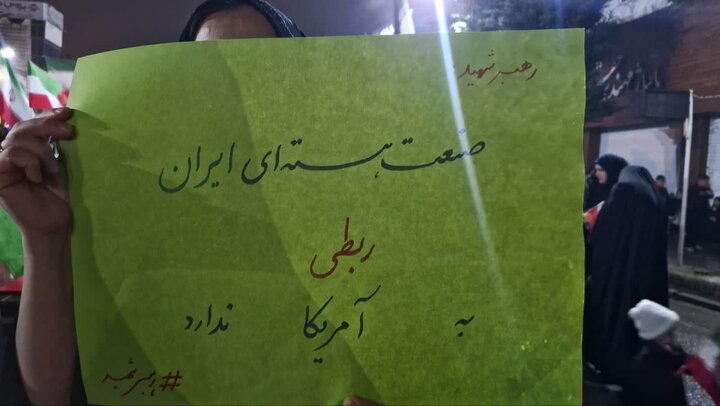 رهبر شهید:
صنعت هسته‌ای ایران
ربطی
به آمریکا ندارد
#رهبر_شهید